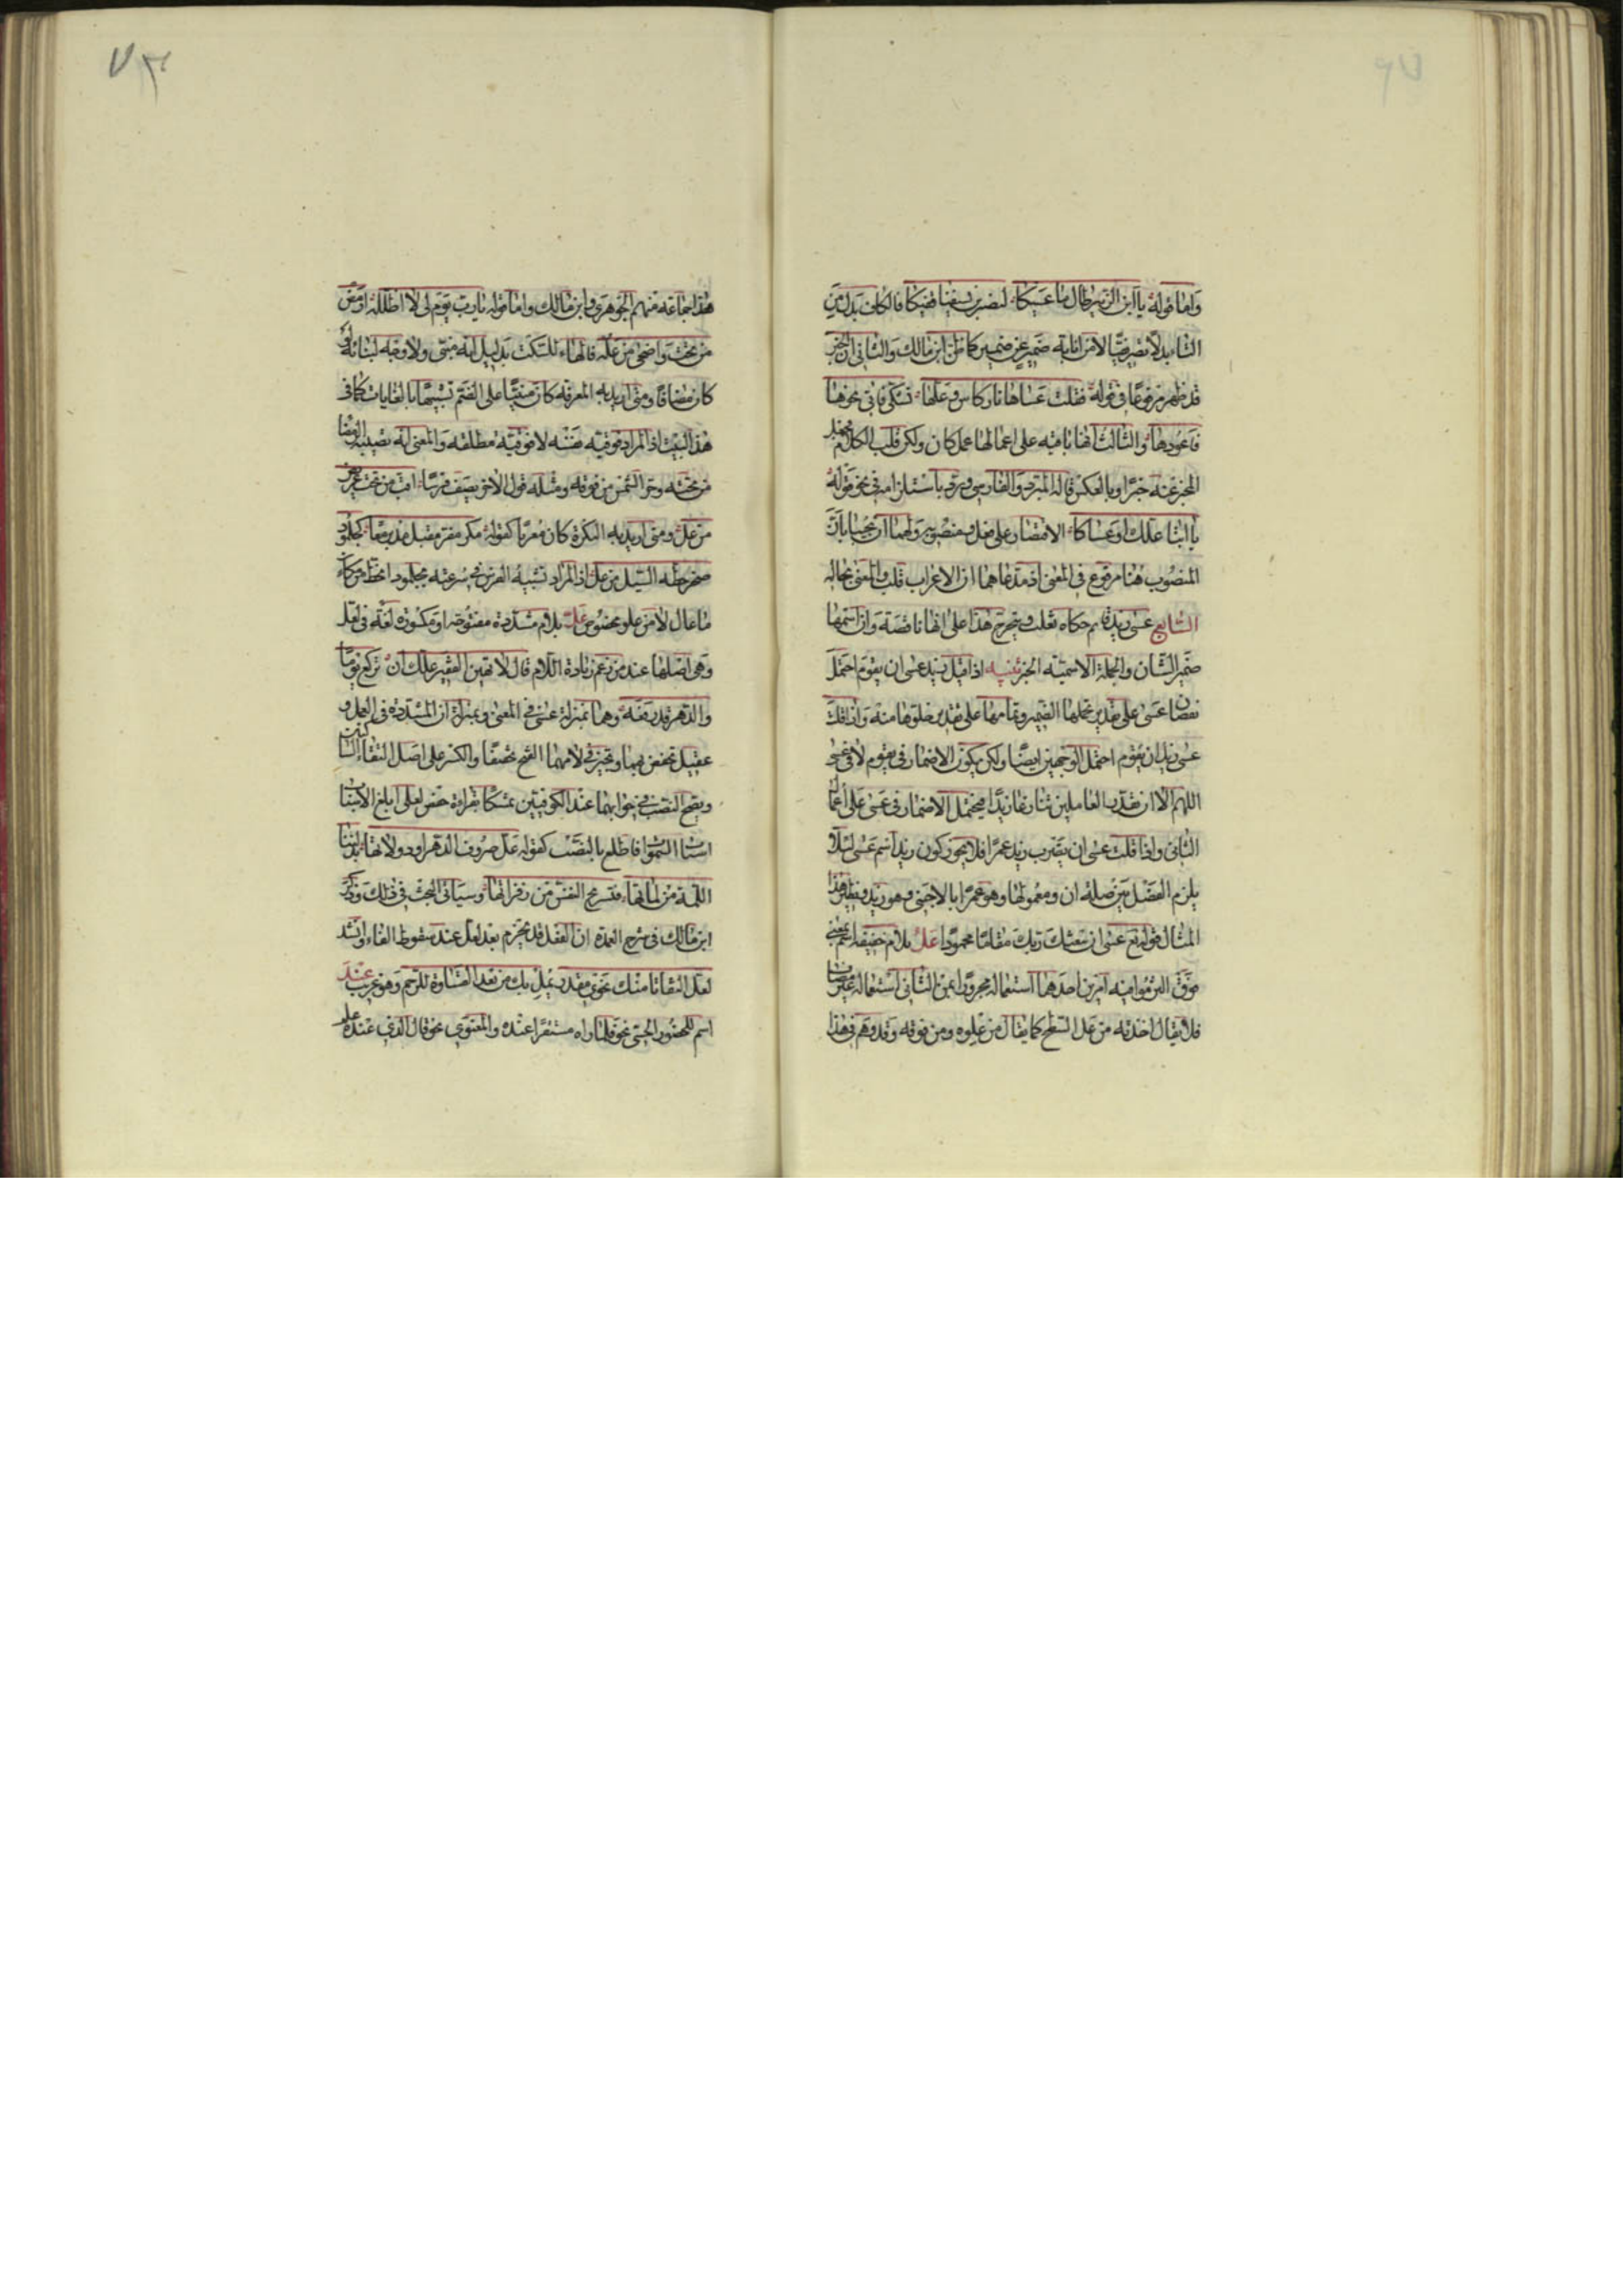 وأما قوله يا ابن الزبير طال ما عصيكا لنضربن بسيفنا قفيكا فالكاف بدل من
التاء بدلا تصريفيا لا من انابة ضمير عن ضمير كما ظن ابن مالك والثاني ان الخبر
قد ظهر مرفوعا في قوله فقلت عساها نار كاس وعلها تشكى فآتي نحوها
فاعودها والثالث انها باقية على اعمالها عمل كان ولكن قلب الكلام فجعل
المخبر عنه خبرا وبالعكس قاله المبرد والفارسي ورد باستلزامه في نحو قوله
يا ابتا علك او عساكا الاقتصار على فعل ومنصوبه ولهما ان يجيبا بأن
المنصوب هنا مرفوع في المعنى اذ مدعاهما ان الاعراب قلب والمعنى بحاله
السابع عسى زيد قائم حكاه ثعلب ويتخرج هذا على انها ناقصة وان اسمها
ضمير الشان والجملة الاسمية الخبر تنبيه اذا قيل زيد عسى ان يقوم احتمل
نقصان عسى على تقدير تحملها الضمير وتمامها على تقدير خلوها منه واذا قلت
عسى زيد ان يقوم احتمل الوجهين ايضا ولكن يكون الاضمار في يقوم لا في عسى
اللهم الا ان تقدر العاملين تنازعا زيدا فيحتمل الاضمار في عسى على اعمال
الثاني واذا قلت عسى ان يضرب زيد عمرا فلا يجوز كون زيد اسم عسى لئلا
يلزم الفصل بين صلة ان ومعمولها وهو عمرا بالاجنبي وهو زيد ونظير هذا
المثال قوله تع عسى ان يبعثك ربك مقاما محمودا عل بلام خفيفة اسم بمعنى
فوق التزموا فيه امرين احدهما استعماله مجرورا بمن الثاني استعماله غير مضاف
فلا يقال اخذته من عل السطح كما يقال من علوه ومن فوقه وقد وهم في هذا
هذا جماعة منهم الجوهري وابن مالك واما قوله يا رب يوم لي لا اظلله ارمض
من تحت واضحى من عله فالهاء للسكت بدليل انه مبني ولا وجه لبنائه لو
كان مضافا ومتى اريد به المعرفة كان مبنيا على الضم تشبيها بالغايات كما في
هذا البيت اذ المراد فوقية نفسه لا فوقية مطلقة والمعنى انه تصيبه الرمضا
من تحته وحر الشمس من فوقه ومثله قول الاخر يصف فرسا اقب من تحت عريض
من عل ومتى اريد به النكرة كان معربا كقوله مكر مفر مقبل مدبر معا كجلمود
صخر حطه السيل من عل اذ المراد تشبيه الفرس في سرعته بجلمود انحط من مكان
ما عال لا من علو مخصوص عل بلام مشددة مفتوحة او مكسورة لغة في لعل
وهي اصلها عند من زعم زيادة اللام قال لا تهين الفقير علك ان تركع يوما
والدهر قد رفعه وهما بمنزلة عسى في المعنى وبمنزلة ان المشددة في العمل و
عقيل تخفض بهما وتجيز في لامهما الفتح تخفيفا والكسر على اصل التقاء الساكنين
ويصح النصب في جوابهما عند الكوفيين تمسكا بقراءة حفص لعلى ابلغ الاسباب
اسباب السموات فاطلع بالنصب كقوله عل صروف الدهر او دولاتها يدلننا
اللمة من لماتها فتستريح النفس من زفراتها وسياتي البحث في ذلك وذكر
ابن مالك في شرح العمدة ان الفعل قد يجزم بعد لعل عند سقوط الفاء وانشد
لعل التفاتا منك نحوي مقدر يمل بك من بعد القساوة للرحم وهو غريب عند
اسم للحضور الحسي نحو فلما راه مستقرا عنده والمعنوي نحو قال الذي عنده علم